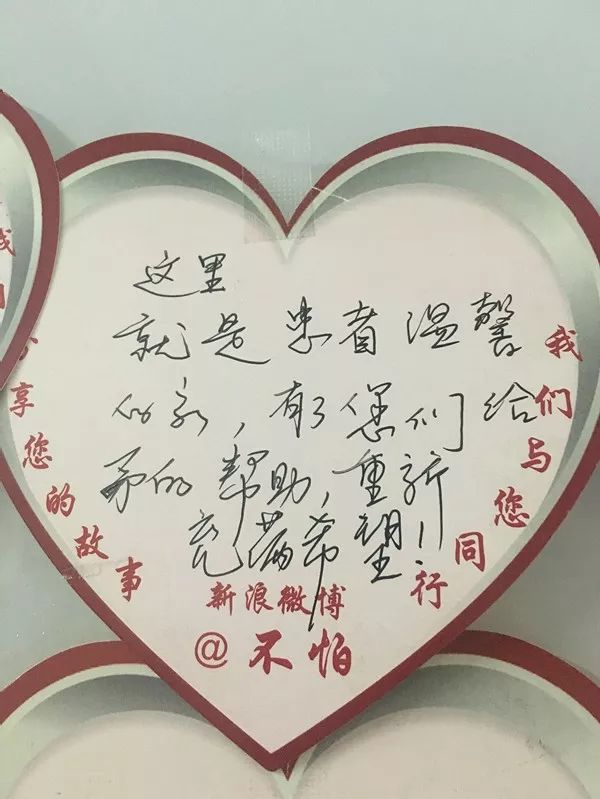 这里
就是患者温馨
的家，有了您们给
予的帮助，重新
充满希望!!
享您的故事
新浪微博
@不怕
我们与您同行